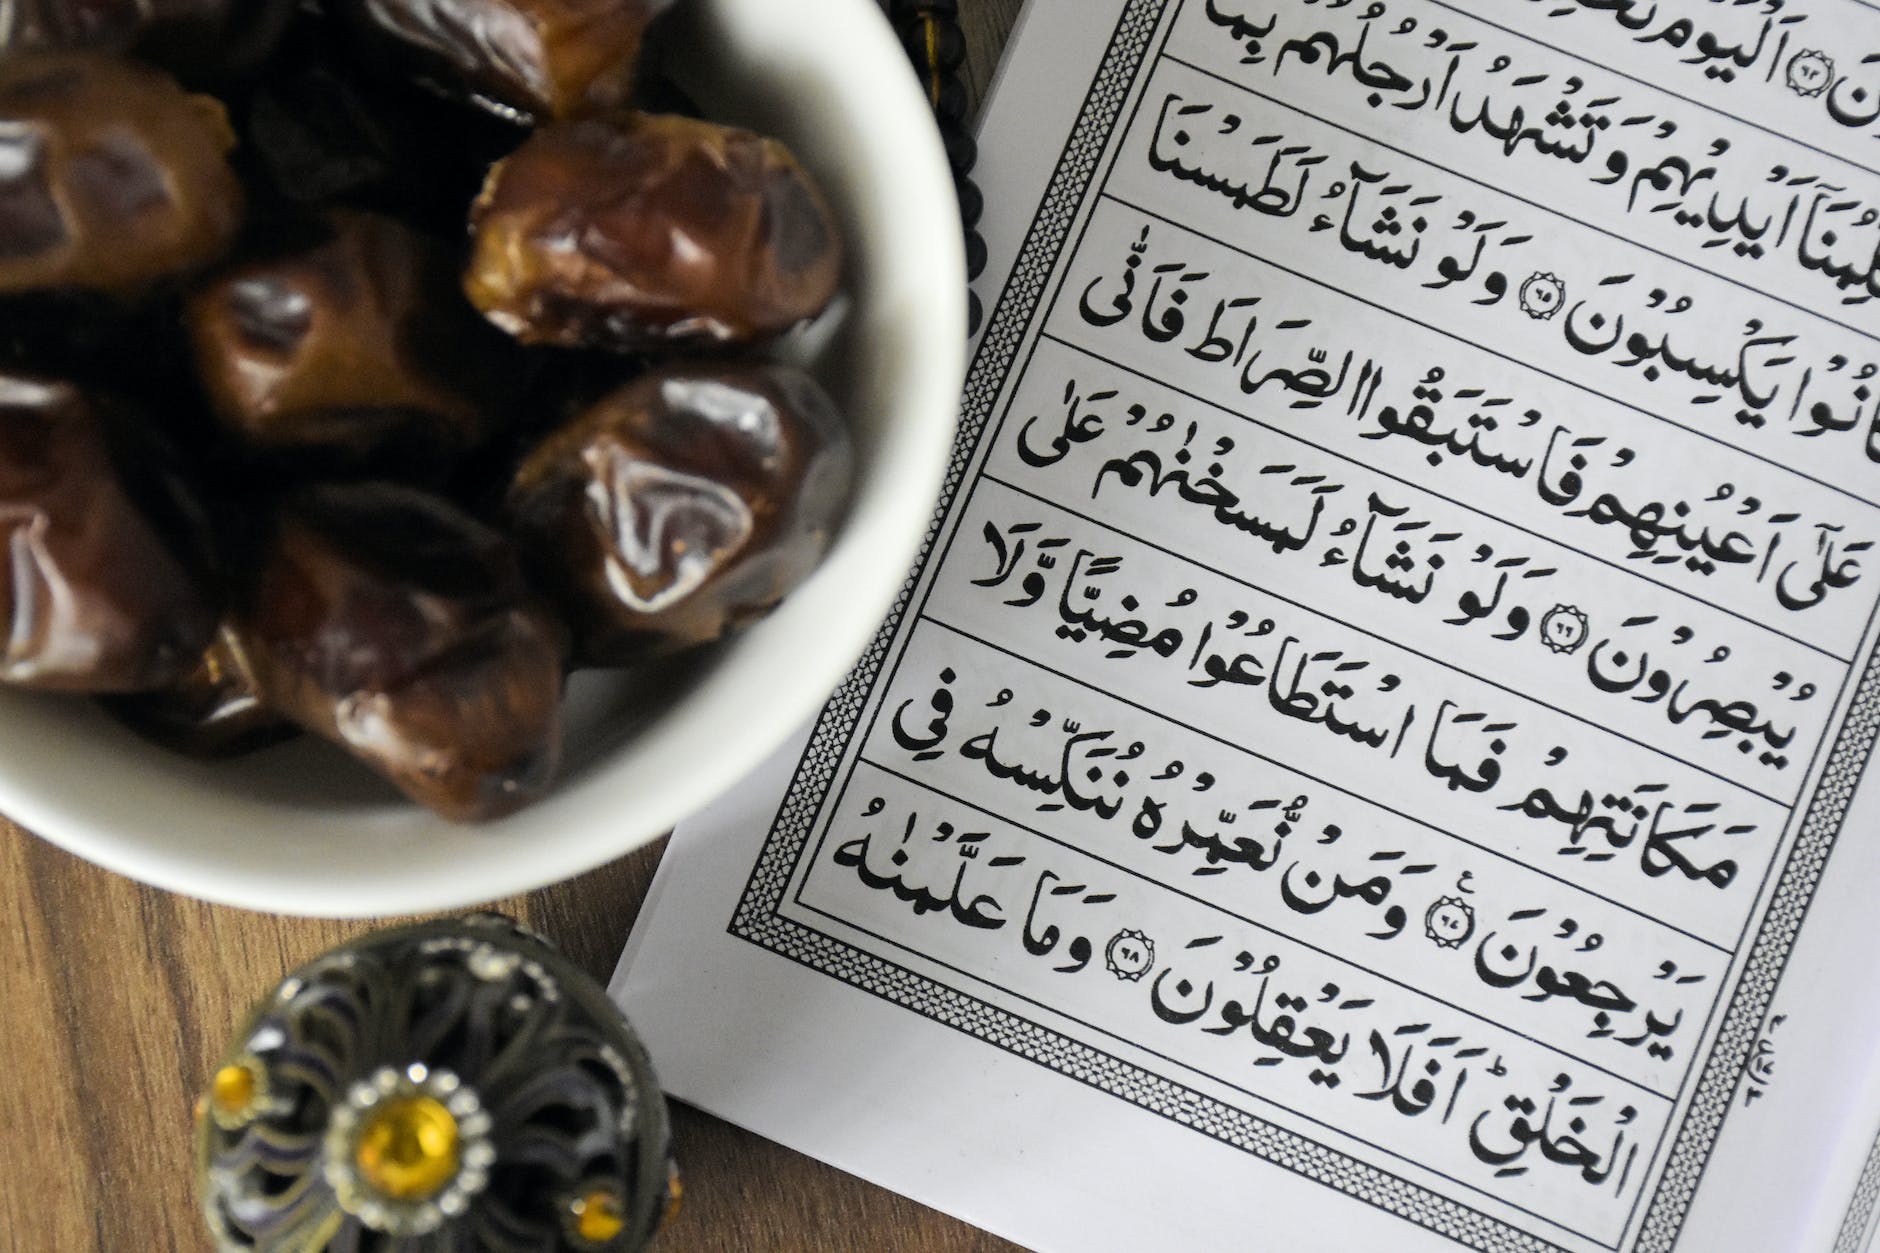 ۙ۝٦٤ اَلْيَوْمَ
اَيْدِيْهِمْ وَتَشْهَدُ اَرْجُلُهُمْ بِمَا
كَانُوْا يَكْسِبُوْنَ ۝٦٥ وَلَوْ نَشَآءُ لَطَمَسْنَا
عَلٰٓى اَعْيُنِهِمْ فَاسْتَبَقُوا الصِّرَاطَ فَاَنّٰى
يُبْصِرُوْنَ ۝٦٦ وَلَوْ نَشَآءُ لَمَسَخْنٰهُمْ عَلٰى
مَكَانَتِهِمْ فَمَا اسْتَطَاعُوْا مُضِيًّا وَّلَا
يَرْجِعُوْنَ ۝٦٧ ع وَمَنْ نُّعَمِّرْهُ نُنَكِّسْهُ فِى
الْخَلْقِ ؕ اَفَلَا يَعْقِلُوْنَ ۝٦٨ وَمَا عَلَّمْنٰهُ